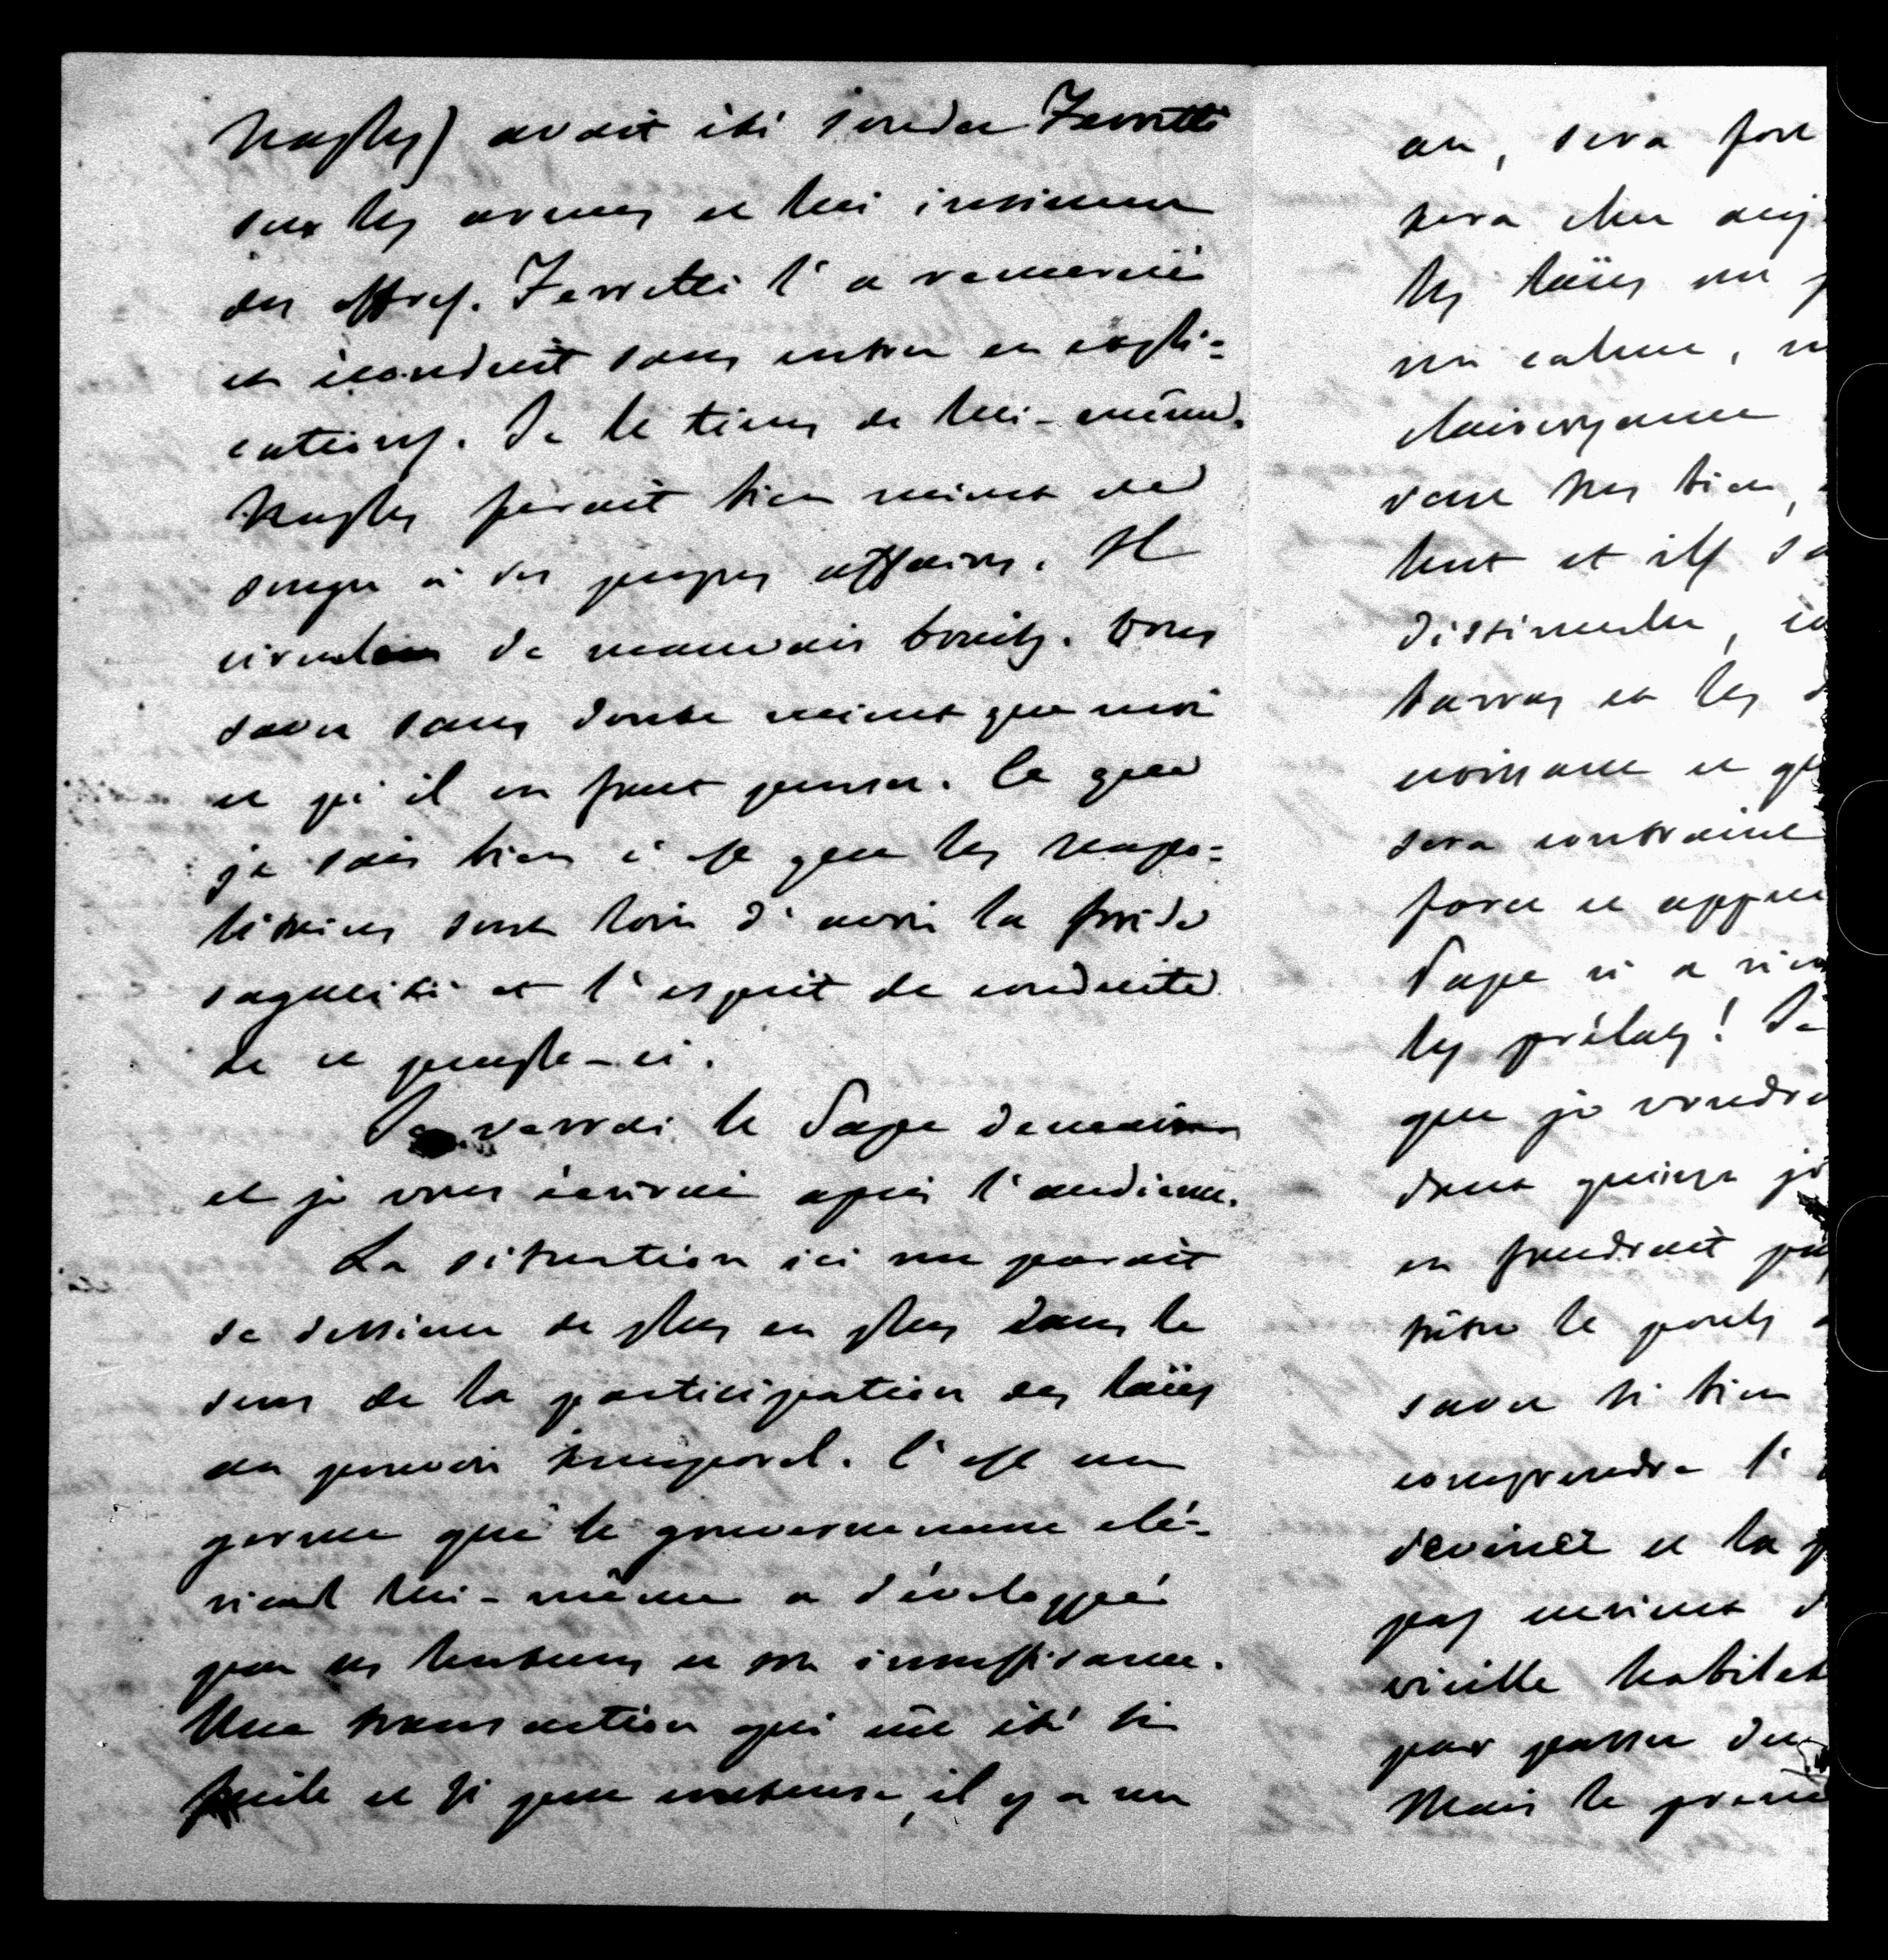 Naples) avait été sonder Ferretti
sur les armes et lui insinuer
des offres. Ferretti l'a remercié
et éconduit sans entrer en expli=
cations. Je le tiens de lui-même.
Naples ferait bien mieux de
songer à ses propres affaires. Il
circule de mauvais bruits. Vous
savez sans doute mieux que moi
ce qu'il en faut penser. Ce que
je sais bien c'est que les napo=
litains sont loin d'avoir la froide
sagacité et l'esprit de conduite
de ce peuple-ci.
Je verrai le Pape demain
et je vous écrirai après l'audience.
La situation ici me parait
se dessiner de plus en plus dans le
sens de la participation des laïcs
au pouvoir temporel. C'est un
germe que le gouvernement clé=
rical lui-même a développé
par ses lenteurs et son insuffisance.
Une transaction qui eût été si
facile et si peu coûteuse, il y a un
an, sera
sera cher
les laïcs ont
ni calme, n
clairvoyance
vont très bien,
tent et ils sa
dissimuler,
barras et les
croissance et
sera contraint
forcer et
Pape n'a rien
les prélats! Je
que je voudra
dans quinze jo
en faudrait
être le poids
savez si bien
comprendre l'
deviner et la
pas
vieille habilet
par passer du
Mais le